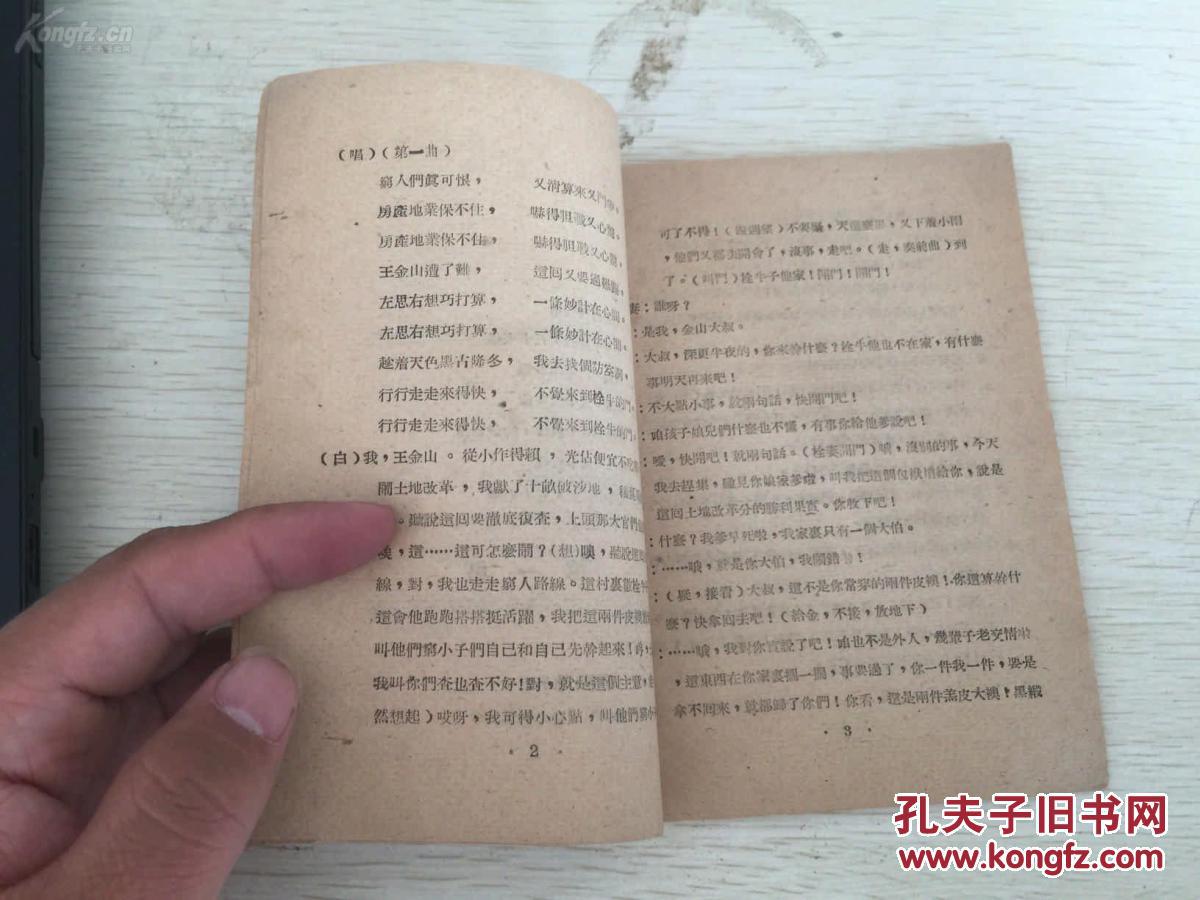 Kongfz.cn
孔夫子旧书网
（唱）（第一曲）
窮人們眞可恨， 又清算來又鬥爭。
房產地業保不住， 嚇得胆戰又心驚，
房產地業保不住， 嚇得胆戰又心驚，
王金山遭了難， 這囘又要過
左思右想巧打算， 一條妙計在心間。
左思右想巧打算， 一條妙計在心間。
趁着天色黑古隆冬， 我去找個防空洞，
行行走走來得快， 不覺來到栓牛的門。
行行走走來得快， 不覺來到栓牛的門。
（白）我，王金山。從小作得賴，光佔便宜不吃
鬧土地改革，我獻了十畝破沙地，
。聽說這囘要澈底復查，上頭那大官們
噢，這……這可怎麼鬧？(想)噢，聽說
線，對，我也走走窮人路線。這村裏
這會他跑跑搭搭挺活躍，我把這兩件皮
叫他們窮小子們自己和自己先幹起來！
我叫你們查也查不好！對，就是這個主意，
然想起）哎呀，我可得小心點，叫他們窮小
·2·
可了不得！（四週望）不要緊，天這麼黑，又下着小雨
，他們又都去開會了，沒事，走吧。（走，奏前曲）到
了。（叫門）栓牛子他家！開門！開門！
妻：誰呀？
：是我，金山大叔。
：大叔，深更半夜的，你來幹什麼？栓牛他也不在家，有什麼
事明天再來吧！
：不大點小事，說兩句話，快開門吧！
：咱孩子娘兒們什麼也不懂，有事你給他爹說吧！
：噯，快開吧！就兩句話。（栓妻開門）哦，沒別的事，今天
我去趕集，碰見你娘家爹啦，叫我把這個包袱捎給你，說是
這囘土地改革分的勝利果實。你收下吧！
：什麼？我爹早死啦，我家裏只有一個大伯。
：……哦，就是你大伯，我鬧錯
：（疑，接看）大叔，這不是你常穿的兩件皮襖！你這算幹什
麼？快拿囘去吧！（給金，不接，放地下）
：……哦，我對你實說了吧！咱也不是外人，幾輩子老交情啦
，這東西在你家裏擱一擱，事要過了，你一件我一件，要是
拿不囘來，就都歸了你們！你看，這是兩件羔皮大襖！黑緞
·3·
孔夫子旧书网
www.kongfz.com